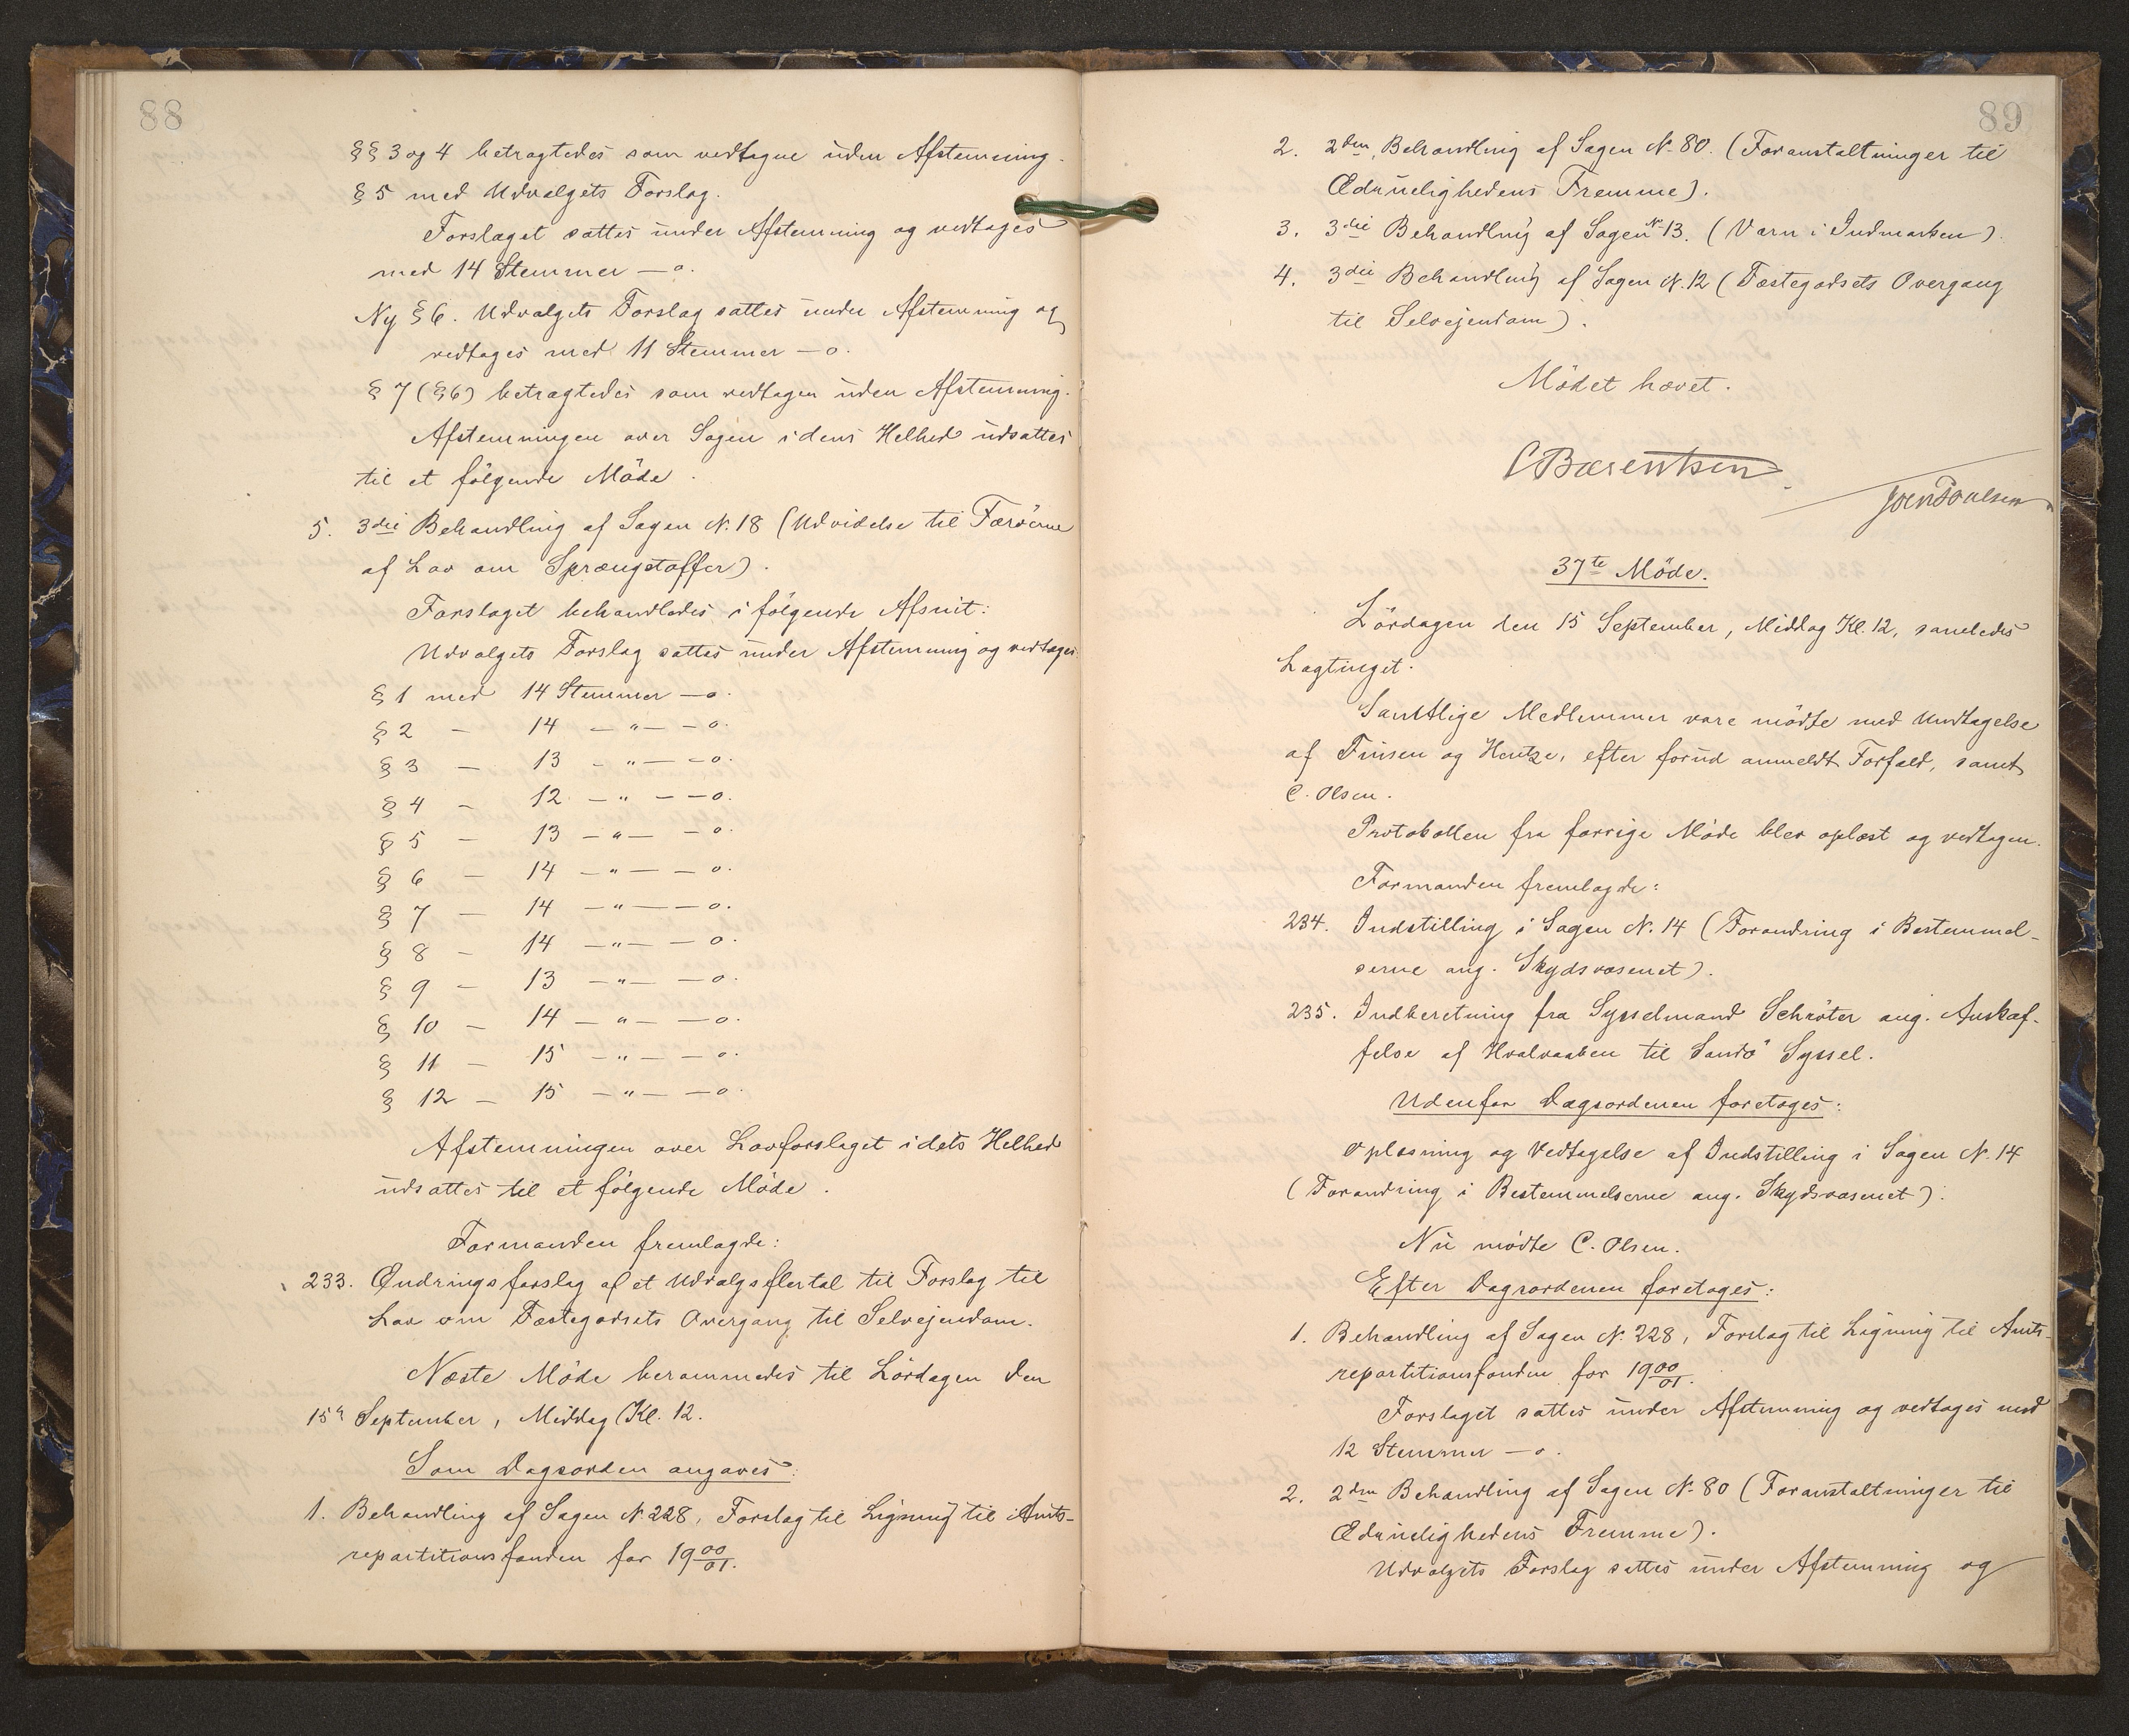 88
§§ 3 og 4 betragtedes som vedtagne uden Afstemning.
§ 5 med Udvalgets Forslag.
Forslaget sattes under Afstemning og vedtoges
med 14 Stemmer — o.
Ny § 6. Udvalgets Forslag sattes under Afstemning og
vedtoges med 11 Stemmer — o.
§ 7 (§6) betragtedes som vedtagen uden Afstemning.
Afstemningen over Sagen i dens Helhed udsattes
til et følgende Møde.
5. 3die Behandling af Sagen N. 18 (Udvidelse til Færöerne
af Lov om Sprængstoffer).
Forslaget behandledes i følgende Afsnit:
Udvalgets Forslag sattes under Afstemning og vedtoges
§ 1 med 14 Stemmer — o.
§ 2 — 14 — " — — o.
§ 3 — 13 — " — — o.
§ 4 — 12 — " — — o.
§ 5 — 13 — " — — o.
§ 6 — 14 — " — — o.
§ 7 — 14 — " — — o.
§ 8 — 14 — " — — o.
§ 9 — 13 — " — — o.
§ 10 — 14 — " — — o.
§ 11 — 15 — " — — o.
§ 12 — 15 — " — — o.
Afstemningen over Lovforslaget i dets Helhed
udsattes til et følgende Møde.
Formanden fremlagde:
233. Ændringsforslag af et Udvalgsflertal til Forslag til
Lov om Fæstegodsets Overgang til Selvejendom.
Næste Møde berammedes til Lördagen den
15de September, Middag Kl. 12.
Som Dagsorden angaves:
1. Behandling af Sagen N. 228, Forslag til Ligning til Amts-
repartitionsfonden for 1900/01.
89
2. 2den Behandling af Sagen N. 80. (Foranstaltninger til
Ædruelighedens Fremme).
3. 3die Behandling af Sagen N. 13. (Værn i Indmarken).
4. 3die Behandling af Sagen N. 12 (Fæstegodsets Overgang
til Selvejendom).
Mödet hævet.
CBærentsen
Joen Poulsen
37te Möde.
Lördagen den 15 September, Middag Kl. 12, samledes
Lagtinget.
Samtlige Medlemmer vare mödte med Undtagelse
af Finsen og Hentze, efter forud anmeldt Forfald, samt
C. Olsen.
Protokollen fra forrige Möde blev oplæst og vedtagen.
Formanden fremlagde:
234. Indstilling i Sagen N. 14 (Forandring i Bestemmel-
serne ang. Skydsvæsenet).
235. Indberetning fra Sysselmand Schröter ang. Anskaf-
felse af Hvalvaaben til Sandö Syssel.
Udenfor Dagsordenen foretoges:
Oplæsning og Vedtagelse af Indstilling i Sagen N. 14
(Forandring i Bestemmelserne ang. Skydsvæsenet).
Nu mödte C. Olsen.
Efter Dagsordenen foretoges:
1. Behandling af Sagen N. 228, Forslag til Ligning til Amts-
repartitionsfonden for 1900/01.
Forslaget sattes under Afstemning og vedtoges med
12 Stemmer — o.
2. 2den Behandling af Sagen N. 80 (Foranstaltninger til
Ædruelighedens Fremme).
Udvalgets Forslag sattes under Afstemning og